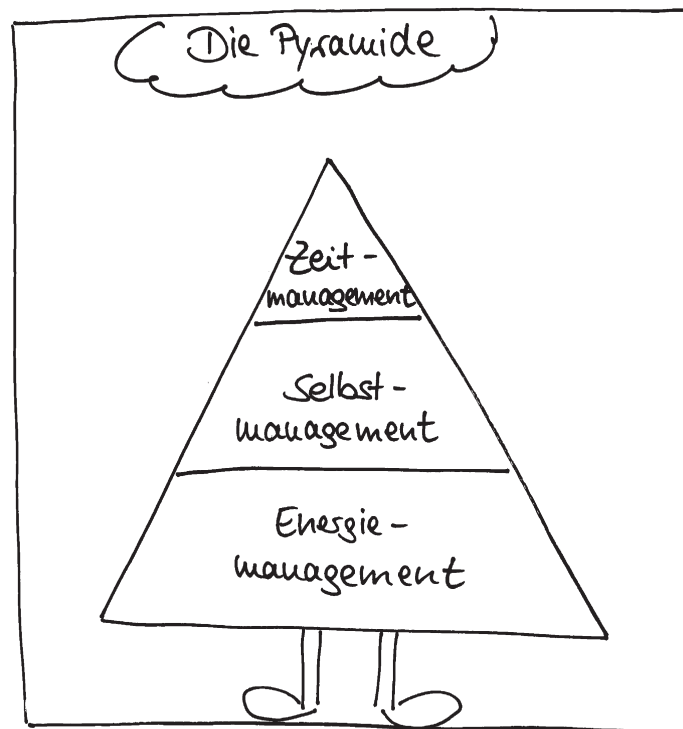 Die Pyramide
Zeit-
management
Selbst-
management
Energie-
management